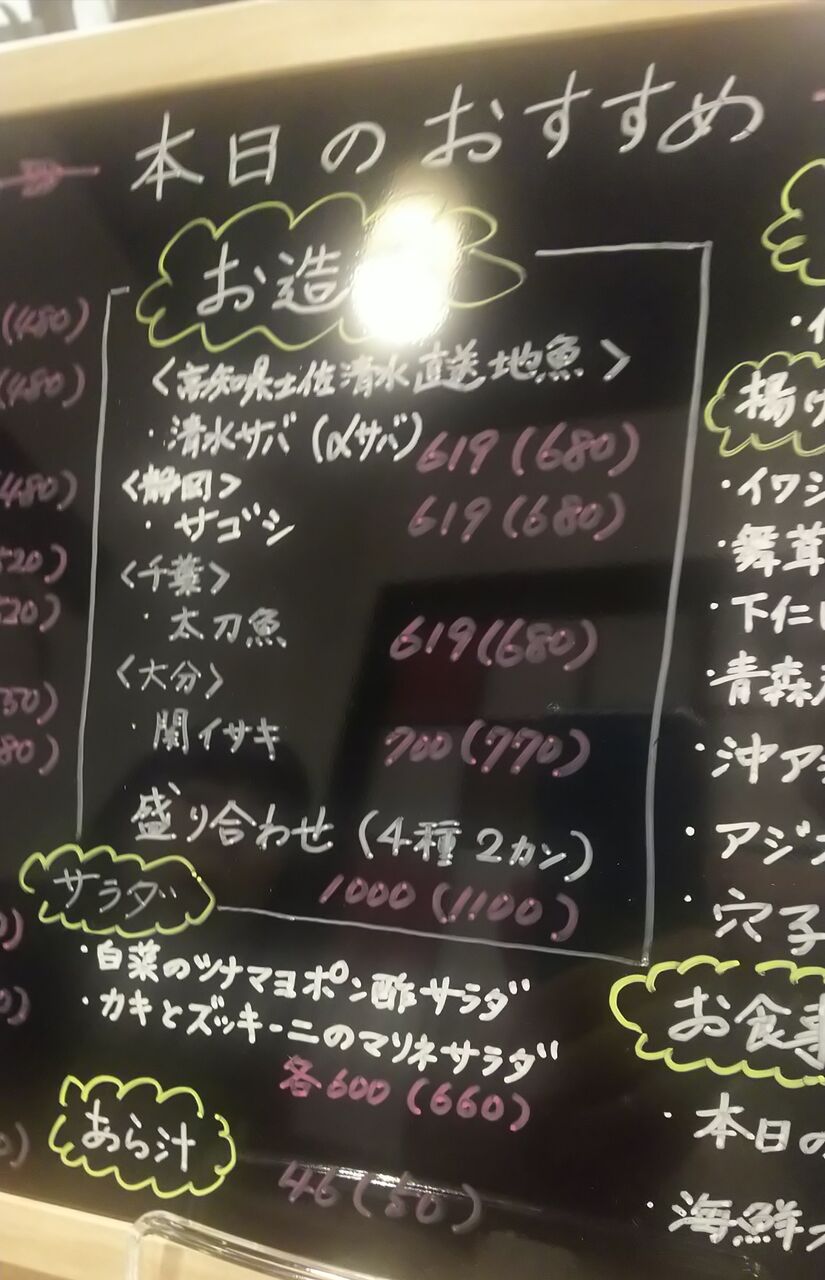 本日のおすすめ
お造
<高知県土佐清水直送地魚>
・清水サバ(αサバ) 619(680)
<静岡>
・サゴシ 619(680)
<千葉>
・太刀魚 619(680)
<大分>
・関イサキ 700(770)
盛り合わせ(4種2カン)
1000(1100)
サラダ
・白菜のツナマヨポン酢サラダ
・カキとズッキーニのマリネサラダ
各600(660)
あら汁
46(50)
(480)
(480)
480)
520)
520)
80)
揚げ
・イワシ
・舞茸
・下仁
・青森
・沖ア
・アジ
・穴子
お食事
・本日の
・海鮮